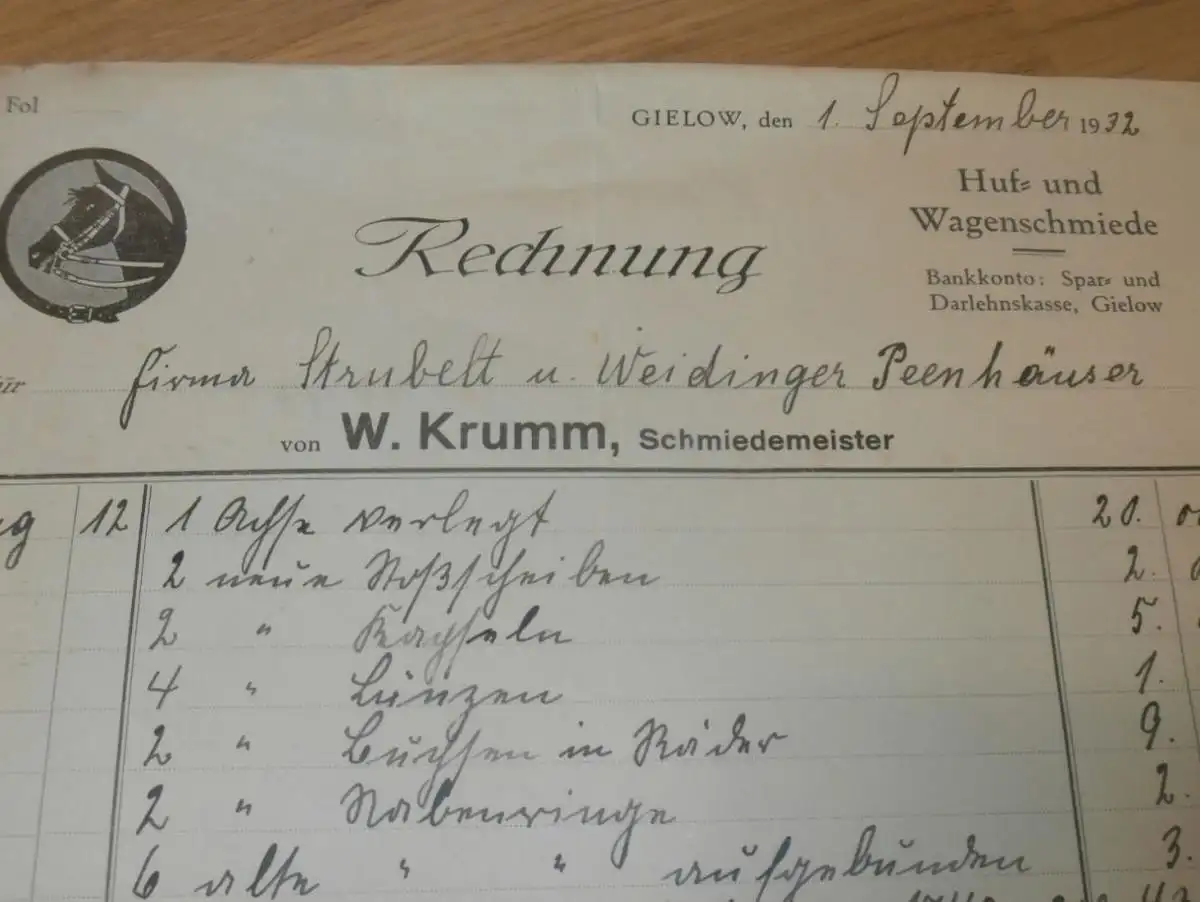 Fol
GIELOW, den 1. September 1932
Huf- und
Wagenschmiede
Rechnung
Bankkonto: Spar- und
Darlehnskasse, Gielow
Firma Strubelt u. Weidinger Peenhäuser
von W. Krumm, Schmiedemeister
12 1 Achse verlegt 20.
2 neue Stoßscheiben 2.
2 " Kapseln 5.
4 " Lünzen 1.
2 " Buchsen in Räder 9.
2 " Nabenringe 2.
6 alte " " aufgebunden 3.